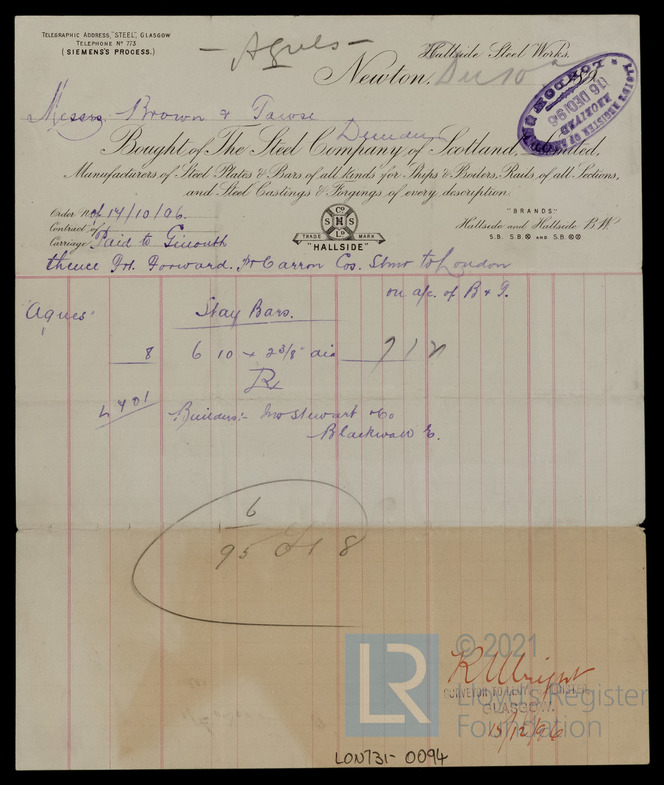 TELEGRAPHIC ADDRESS, "STEEL", GLASGOW
TELEPHONE Nº 773
(SIEMENS'S PROCESS.)
— Agnes —
Hallside Steel Works.
Newton, Dec 10
Messrs Brown & Tawse
Dundee
Bought of The Steel Company of Scotland, Limited,
Manufacturers of Steel Plates & Bars of all kinds for Ships & Boilers, Rails of all Sections,
and Steel Castings & Forgings of every description.
Order Nº of 14/10/96.
Contract of
Carriage Paid to
TRADE MARK
Cº
S N S
Lº
"HALLSIDE"
"BRANDS"
Hallside and Hallside B.W.
S.B. S.B.® AND S.B.®®
thence Forward. pr Carron Cos. Stmr to London
on a/c. of B & T.
"Agnes"
Stay Bars.
8 6 10 × 2 3/8" dia
Builders:- Jno Stewart & Co
Blackwall E.
6
95 8
© 2021
LR
Lloyd's Register
Foundation
SURVEYOR TO LLOYD'S REGISTER
GLASGOW.
15/12/96
LON731-0094